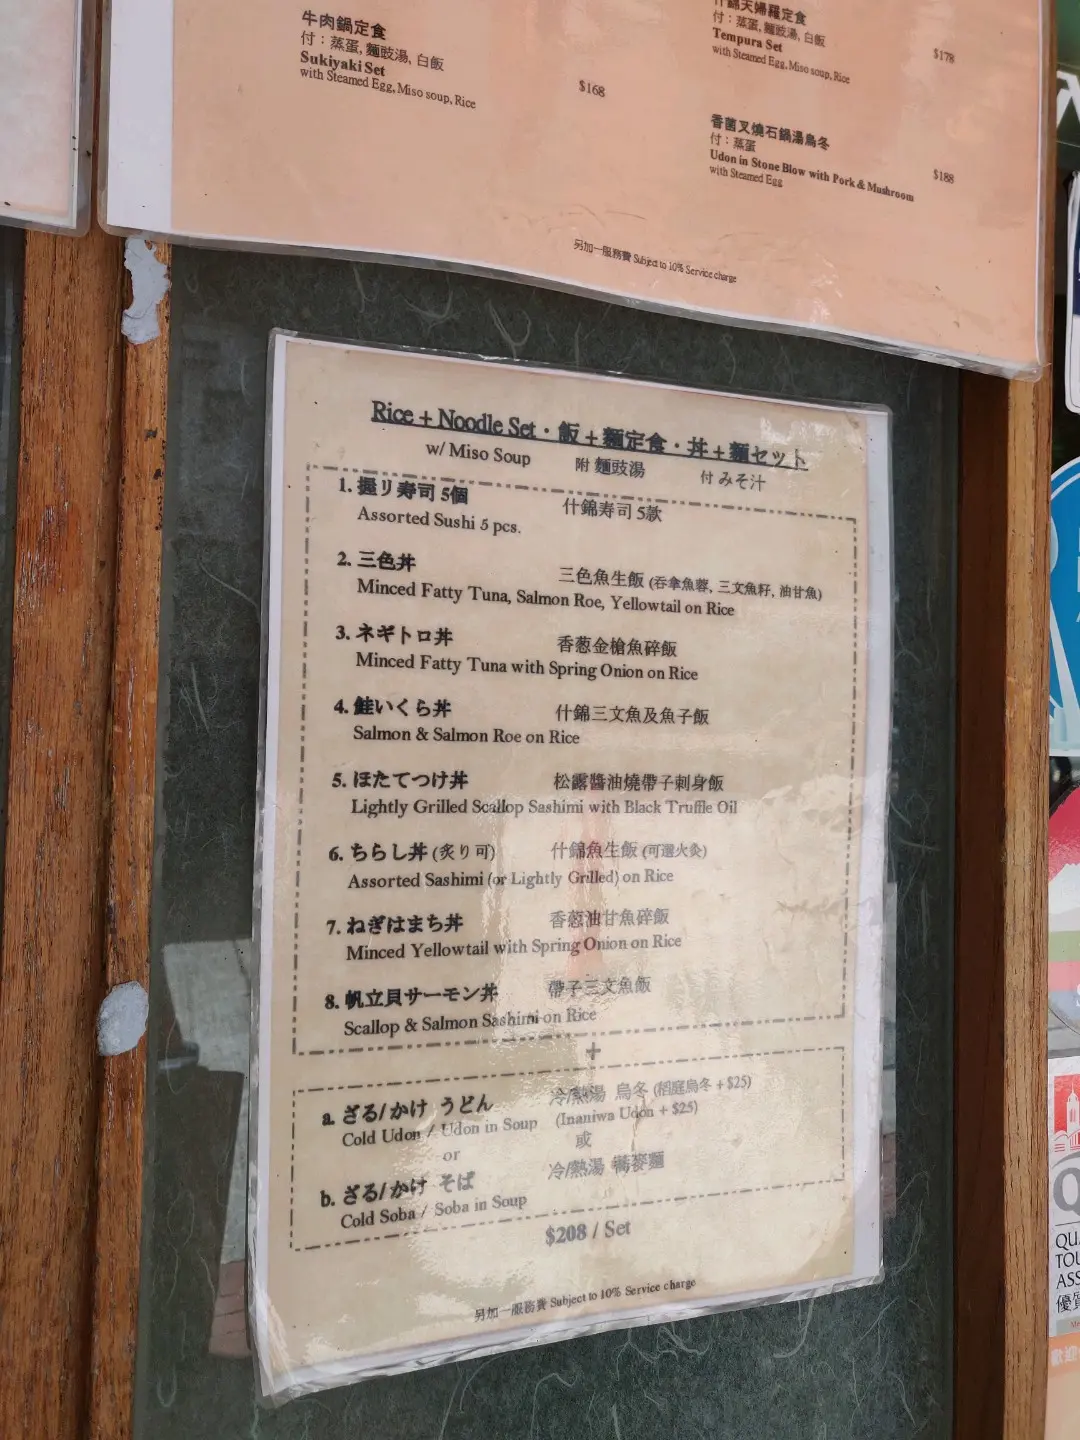 牛肉鍋定食
付：蒸蛋, 麵豉湯, 白飯
Sukiyaki Set
with Steamed Egg, Miso soup, Rice
$168
什錦天婦羅定食
付：蒸蛋, 麵豉湯, 白飯
Tempura Set
with Steamed Egg, Miso soup, Rice
$178
香菌叉燒石鍋湯烏冬
付：蒸蛋
Udon in Stone Blow with Pork & Mushroom
with Steamed Egg
$188
另加一服務費 Subject to 10% Service charge
Rice + Noodle Set · 飯 + 麵定食 · 丼 + 麺セット
w/ Miso Soup 附 麵豉湯 付 みそ汁
1. 握り寿司 5個 什錦寿司 5款
Assorted Sushi 5 pcs.
2. 三色丼 三色魚生飯 (吞拿魚蓉, 三文魚籽, 油甘魚)
Minced Fatty Tuna, Salmon Roe, Yellowtail on Rice
3. ネギトロ丼 香葱金槍魚碎飯
Minced Fatty Tuna with Spring Onion on Rice
4. 鮭いくら丼 什錦三文魚及魚子飯
Salmon & Salmon Roe on Rice
5. ほたてつけ丼 松露醬油燒帶子刺身飯
Lightly Grilled Scallop Sashimi with Black Truffle Oil
6. ちらし丼 (炙り可) 什錦魚生飯 (可選火灸)
Assorted Sashimi (or Lightly Grilled) on Rice
7. ねぎはまち丼 香葱油甘魚碎飯
Minced Yellowtail with Spring Onion on Rice
8. 帆立貝サーモン丼 帶子三文魚飯
Scallop & Salmon Sashimi on Rice
+
a. ざる/かけ うどん 冷/熱湯 烏冬 (稻庭烏冬 + $25)
Cold Udon / Udon in Soup (Inaniwa Udon + $25)
or 或
b. ざる/かけ そば 冷/熱湯 蕎麥麵
Cold Soba / Soba in Soup
$208 / Set
另加一服務費 Subject to 10% Service charge
QU
TOU
ASS
優質